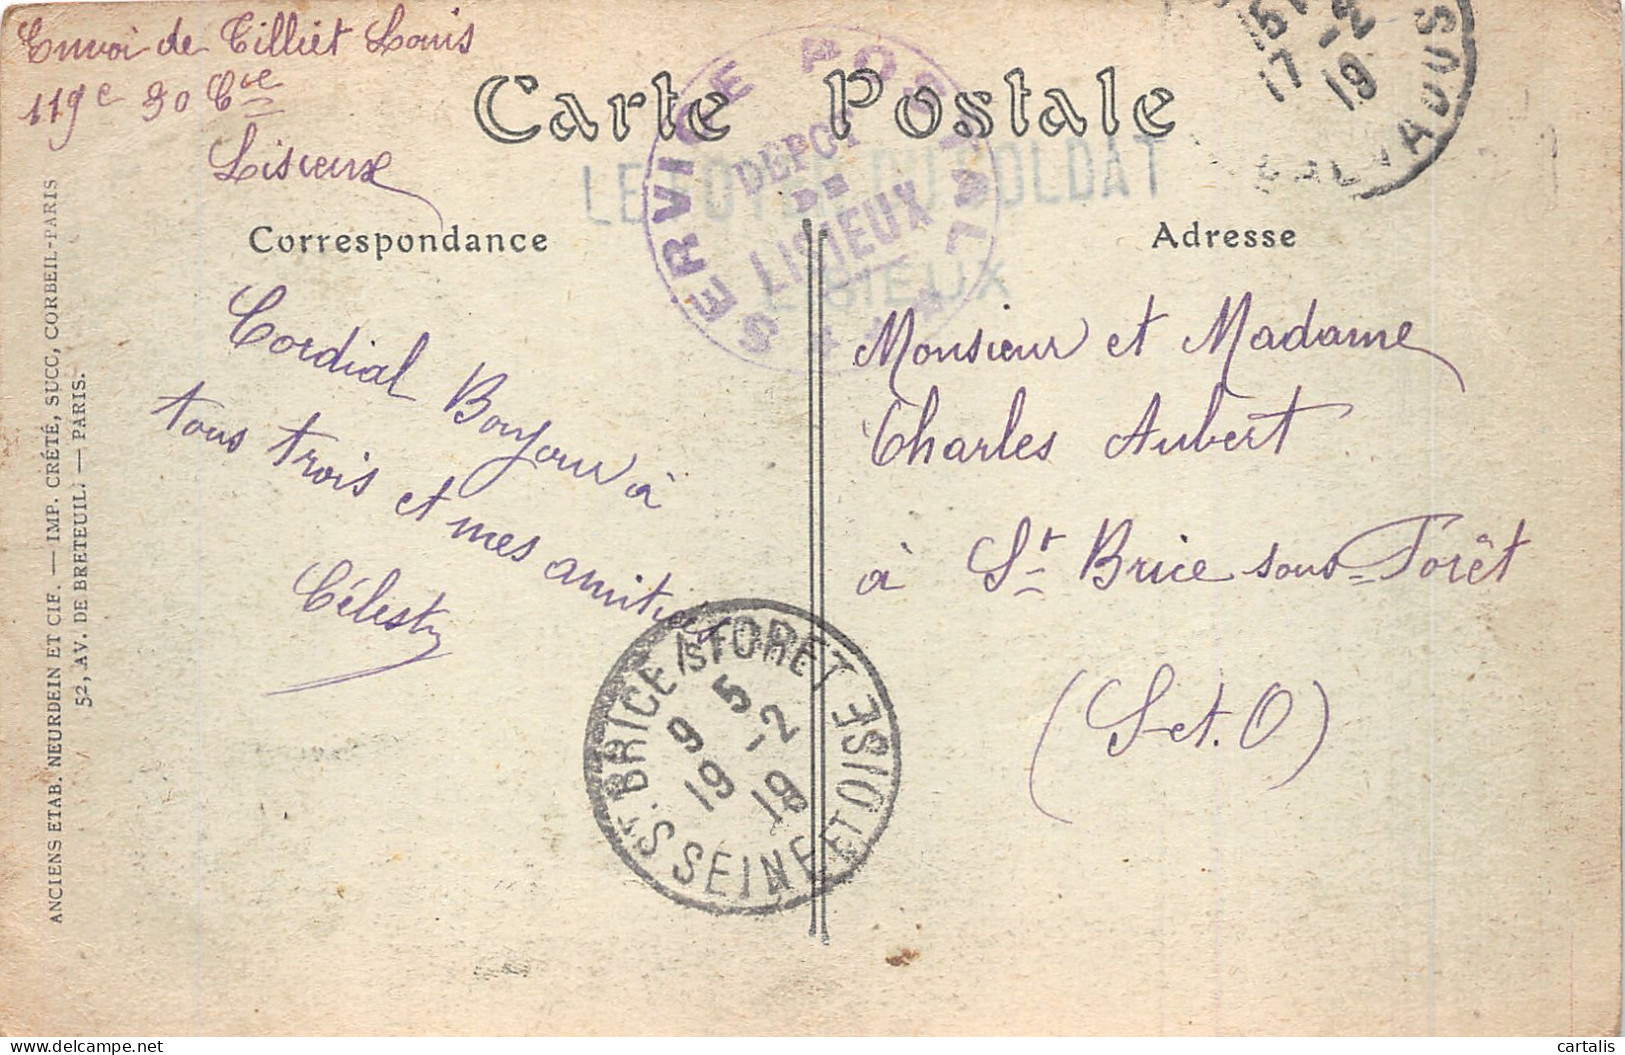 Envoi de Tilliet Louis
119e 30 Cie
Lisieux
Carte Postale
SERVICE POSTAL
DEPOT
DE
LISIEUX
LE FOYER DU SOLDAT
LISIEUX
17
-2
19
CALVADOS
Correspondance
Adresse
Cordial Bonjour à
tous trois et mes amitiés
Célesty
Monsieur et Madame
Charles Aubert
à St Brice sous-Forêt
(S-et.O)
ST. BRICE S/S FORET
9 5
19 -2
19
SEINE ET OISE
ANCIENS ETAB. NEURDEIN ET CIE. — IMP. CRÉTÉ, SUCC, CORBEIL-PARIS
52, AV. DE BRETEUIL. — PARIS.
cartalis